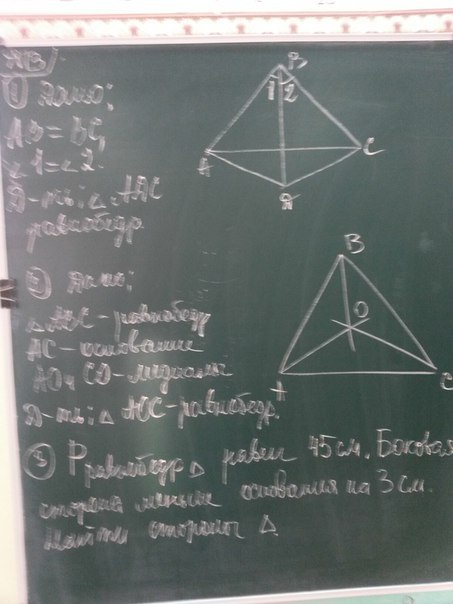 ① Дано:
AB = BC,
∠1=∠2.
Д-ть: △ АДС
равнобедр.
B
1 2
A
C
Д
② Дано:
△ ABC - равнобедр
AC - основание
AO и CO - медианы
Д-ть: △ AOC - равнобедр.
B
O
A
C
③ P равнобедр △ равен 45 см. Боковая
сторона меньше основания на 3 см.
Найти стороны △